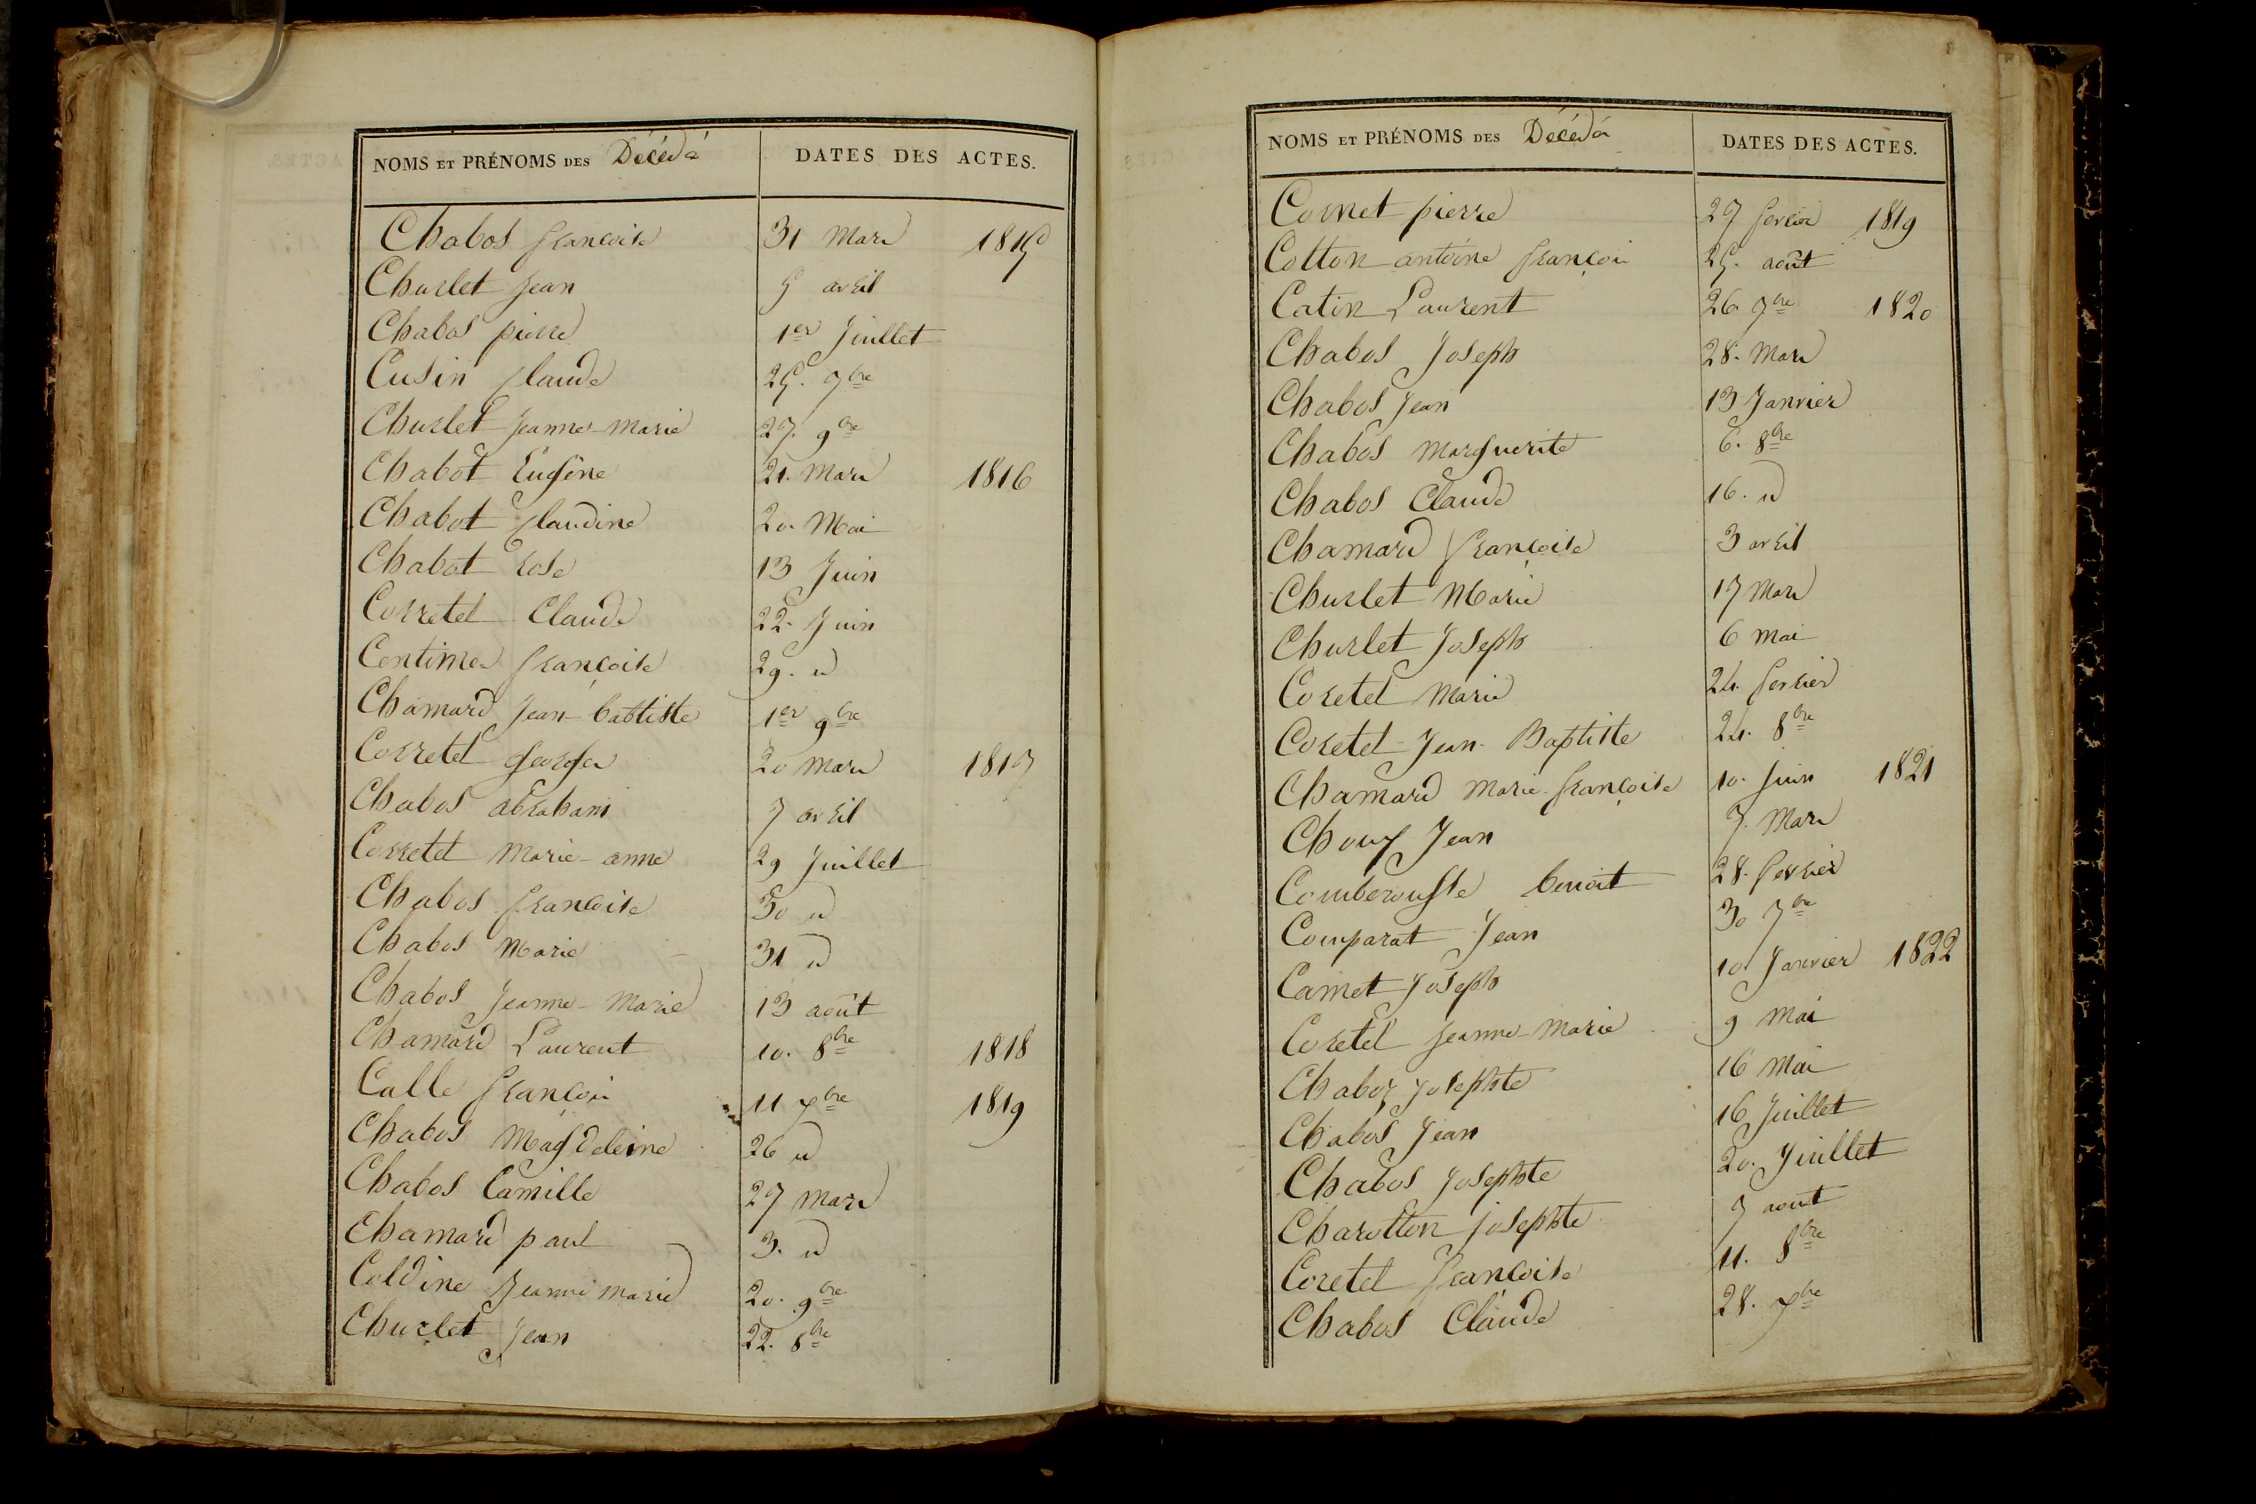 NOMS ET PRÉNOMS DES Décédés DATES DES ACTES.
Chabos françoise 31 Mars 1815
Churlet Jean 5 avril
Chabos pierre 1er Juillet
Cusin Claude 25. 7bre
Churlet Jeanne-Marie 27. 9bre
Chabot Eugêne 21. Mars 1816
Chabot Claudine 20. Mai
Chabot rose 13 Juin
Corretel Claude 22. Juin
Centimes françoise 29. d
Chamard Jean-baptiste 1er 9bre
Corretel Georges 20 Mars 1817
Chabos abraham 7 avril
Corretel Marie-anne 29 Juillet
Chabos françoise 30 d
Chabos Marie 31 d
Chabos Jeanne-Marie 13 août
Chamard Laurent 10. 8bre 1818
Calle françois 11 xbre 1819
Chabos Magdeleine 26 d
Chabos Camille 27 Mars
Chamard paul 3. d
Coldine Jeanne Marie 20. 9bre
Churlet Jean 22. 8bre
NOMS ET PRÉNOMS DES Décédés DATES DES ACTES.
Cornet pierre 27 fevrier 1819
Cotton antoine françois 25. août
Catin Laurent 26 7bre 1820
Chabos Joseph 28. Mars
Chabos Jean 13 Janvier
Chabos Marguerite 6. 8bre
Chabos Claude 16. d
Chamard françoise 3 avril
Churlet Marie 17 Mars
Churlet Joseph 6 mai
Coretel Marie 24. fevrier
Coretel Jean-Baptiste 24. 8bre
Chamard Marie-françoise 10. Juin 1821
Chouy Jean 7. Mars
Comberousse benoit 28. fevrier
Comparat Jean 30 7bre
Camet Joseph 10. Janvier 1822
Coretel Jeanne-Marie 9 Mai
Chaboz Josephte 16 Mai
Chabos Jean 16 Juillet
Chabos Josephte 20. Juillet
Charotton Josephte 7 aout
Coretel françoise 11. 8bre
Chabos Claude 28. xbre